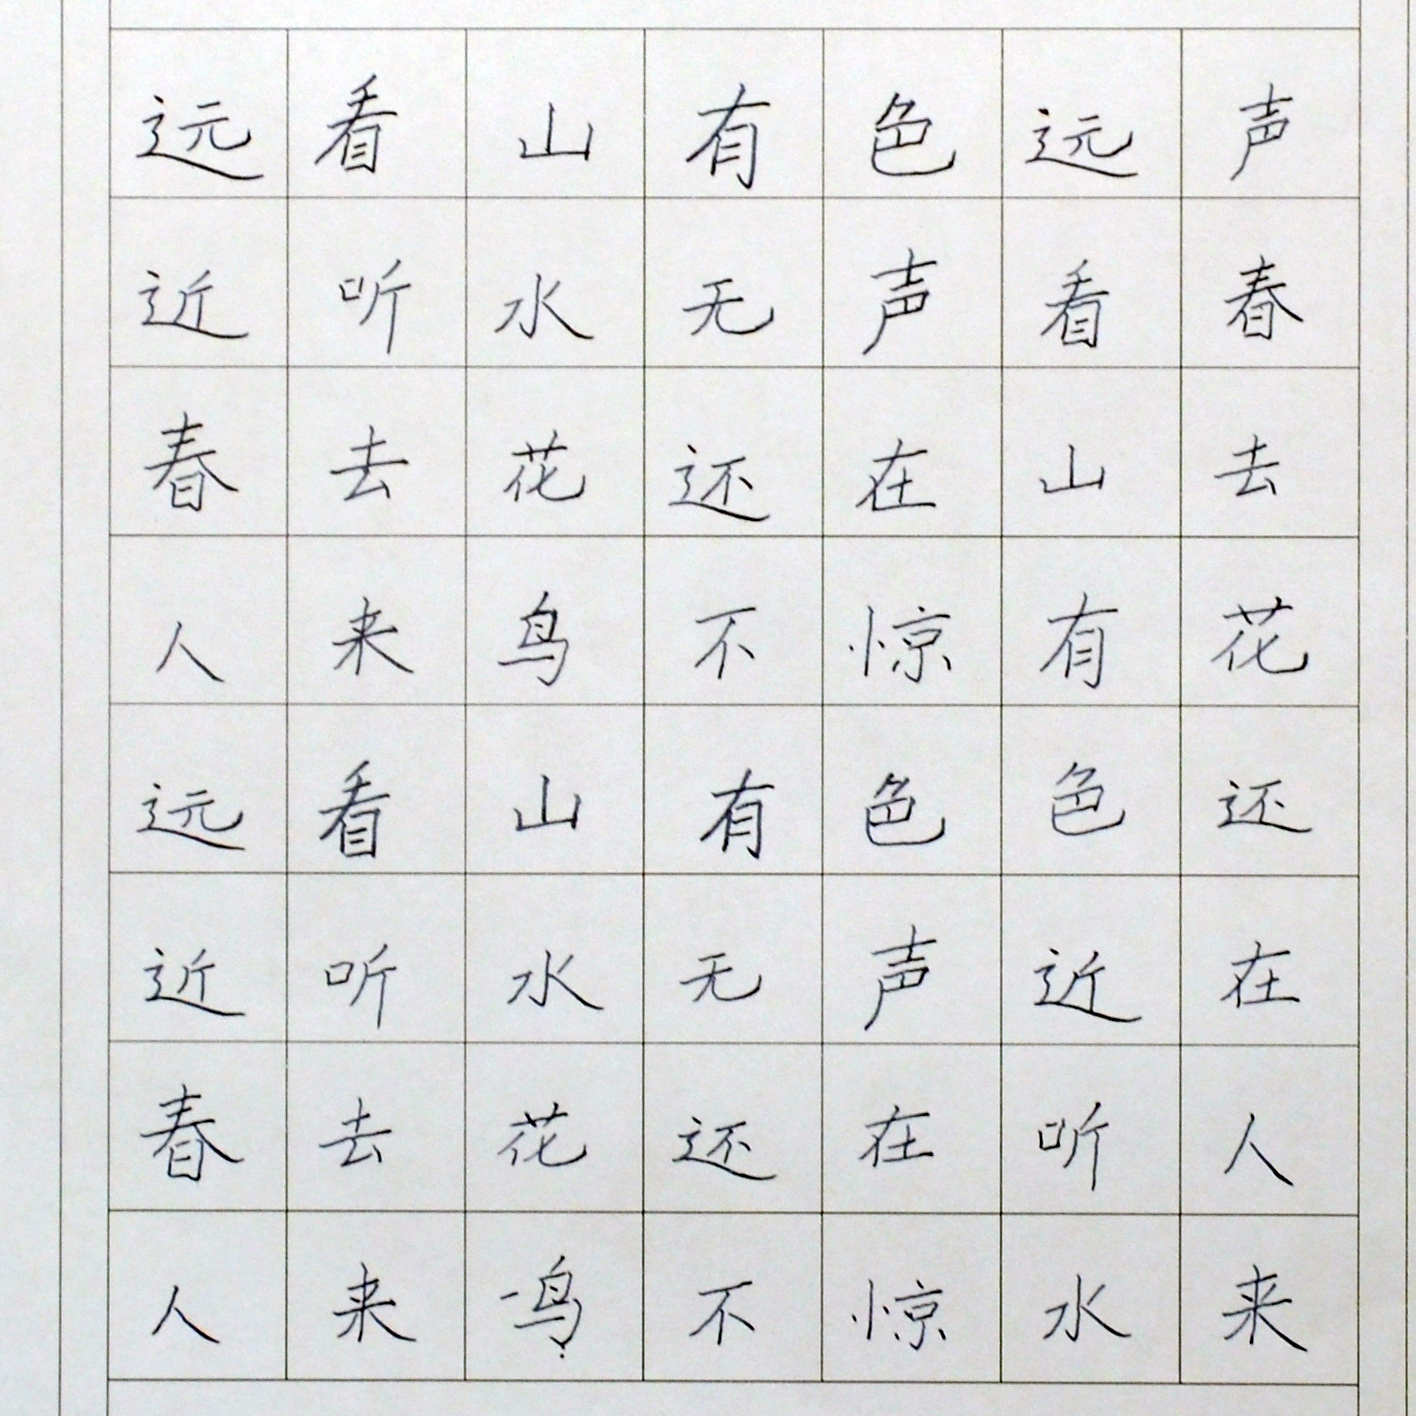 远看山有色远声
近听水无声看春
春去花还在山去
人来鸟不惊有花
远看山有色色还
近听水无声近在
春去花还在听人
人来鸟不惊水来